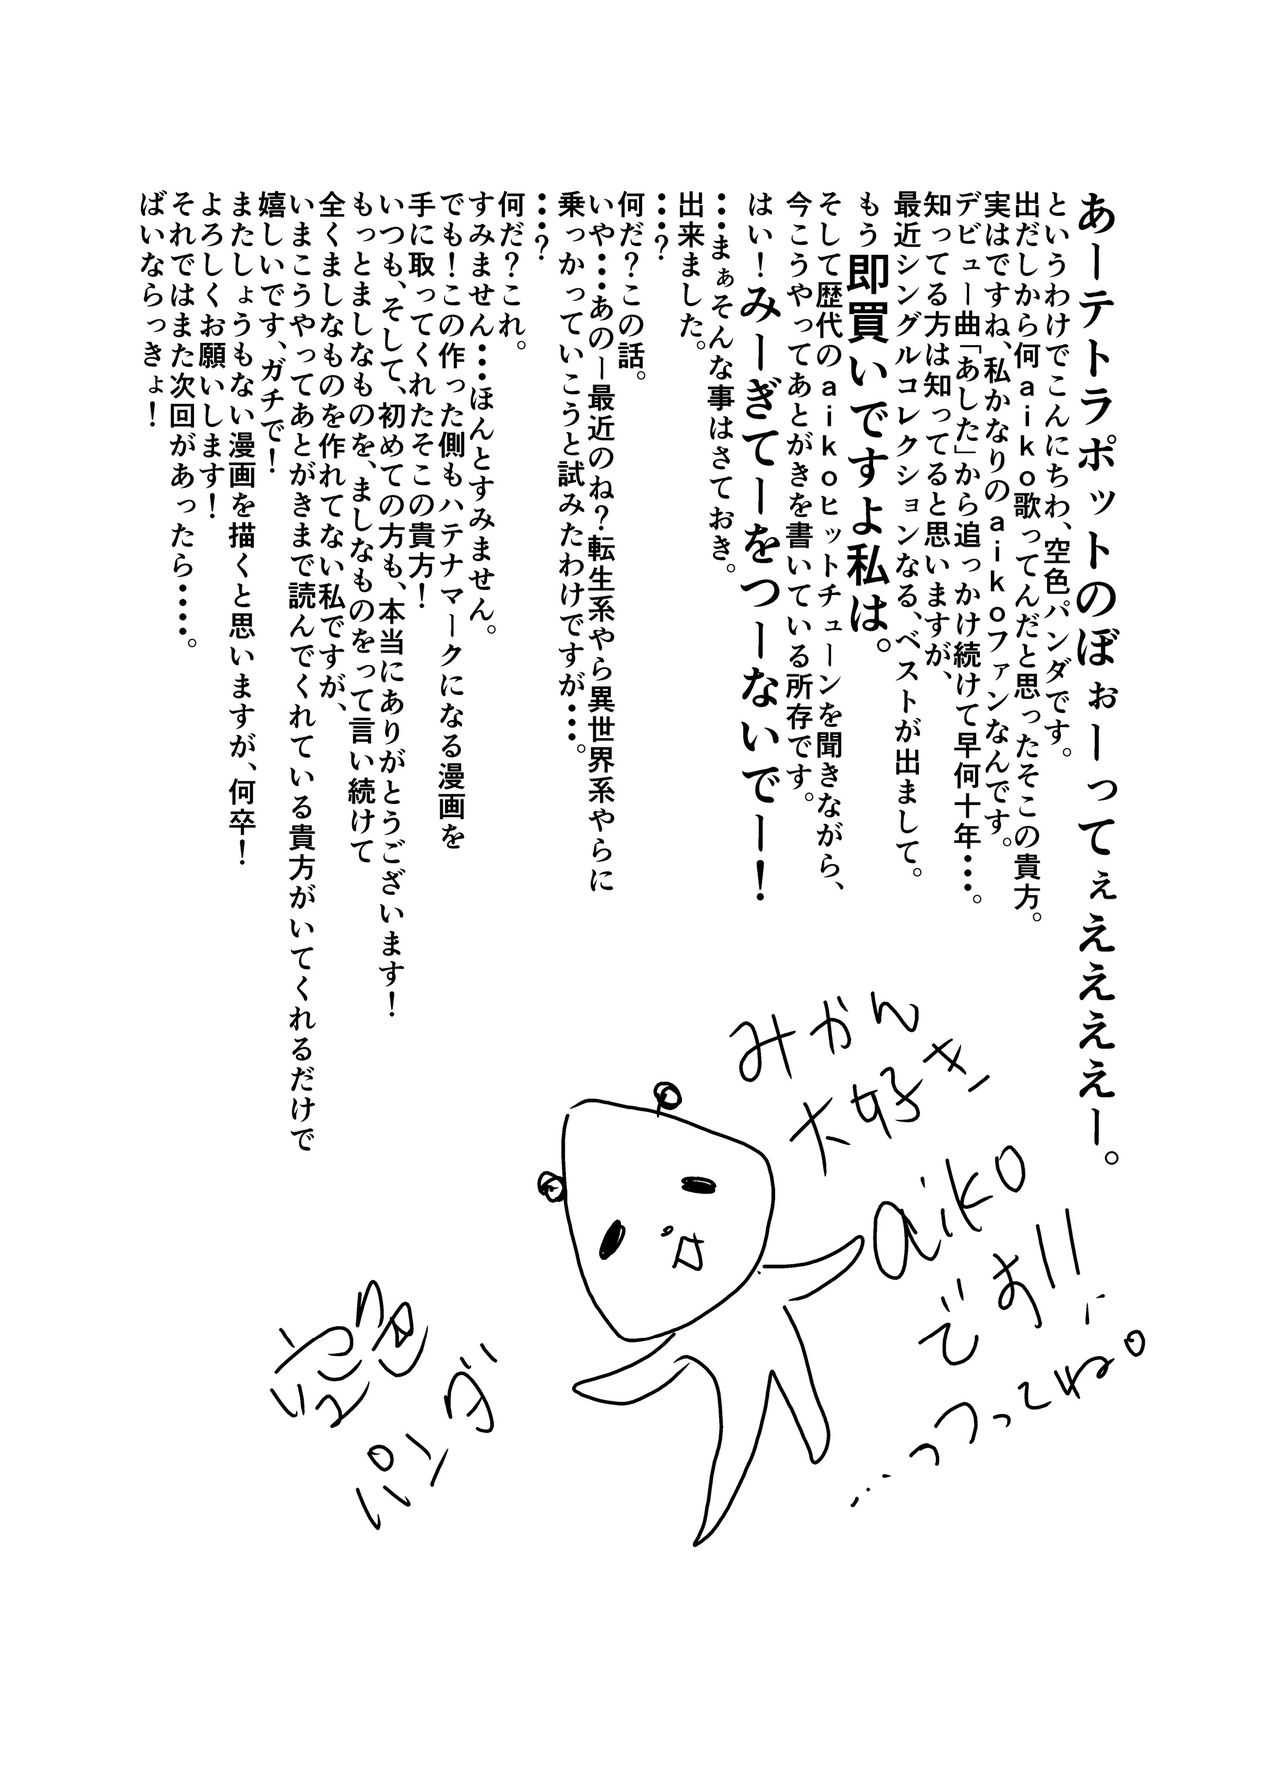 あーテトラポットのぼぉーってぇえええええー。
というわけでこんにちわ、空色パンダです。
出だしから何aiko歌ってんだと思ったそこの貴方。
実はですね、私かなりのaikoファンなんです。
デビュー曲「あした」から追っかけ続けて早何十年・・・。
知ってる方は知ってると思いますが、
最近シングルコレクションなる、ベストが出まして。
もう即買いですよ私は。
そして歴代のaikoヒットチューンを聞きながら、
今こうやってあとがきを書いている所存です。
はい！みーぎてーをつーないでー！
・・・まぁそんな事はさておき。
出来ました。
・・・？
何だ？この話。
いや・・・あのー最近のね？転生系やら異世界系やらに
乗っかっていこうと試みたわけですが・・・。
・・・？
何だ？これ。
すみません・・・ほんとすみません。
でも！この作った側もハテナマークになる漫画を
手に取ってくれたそこの貴方！
いつも、そして、初めての方も、本当にありがとうございます！
もっとましなものを、ましなものをって言い続けて
全くましなものを作れてない私ですが、
いまこうやってあとがきまで読んでくれている貴方がいてくれるだけで
嬉しいです、ガチで！
またしょうもない漫画を描くと思いますが、何卒！
よろしくお願いします！
それではまた次回があったら・・・・。
ばいならっきょ！
みかん
大好き
aiko
です!!
…っつってね。
空色
パンダ